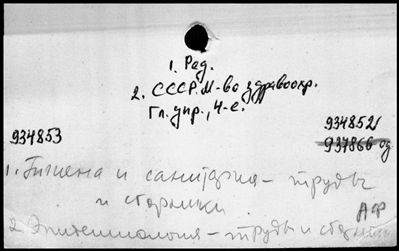 1. Ред.
2. СССР. М-во здравоохр.
Гл. упр., 4-е.
934853
934852
937866 од
1. Гигиена и санитария - труды
и сборники
АФ
2 Эпидемиология - труды и сборники